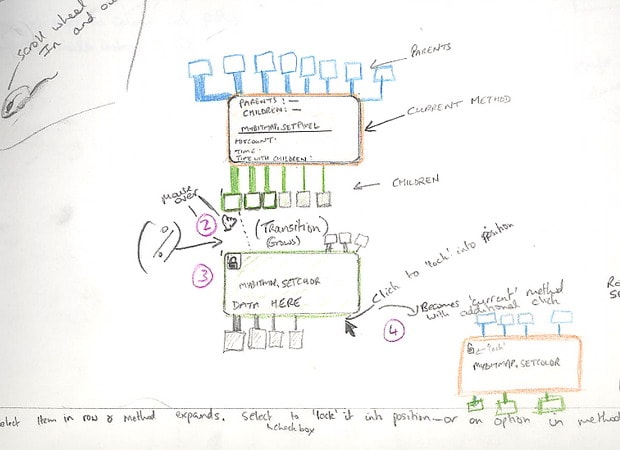 scroll wheel
In and
PARENTS
PARENTS: —
CHILDREN: —
MYBITMAP.SETPIXEL
HITCOUNT:
TIME:
TIME WITH CHILDREN:
CURRENT METHOD
CHILDREN
mouse
over
2
(Transition)
(Grows)
3
MYBITMAP.SETCOLOR
DATA HERE
Click to 'lock' into position
4
Becomes 'current' method
with additional click
'lock'
MYBITMAP.SETCOLOR
item in row & method expands. Select to 'lock' it into position — or an option in method
checkbox